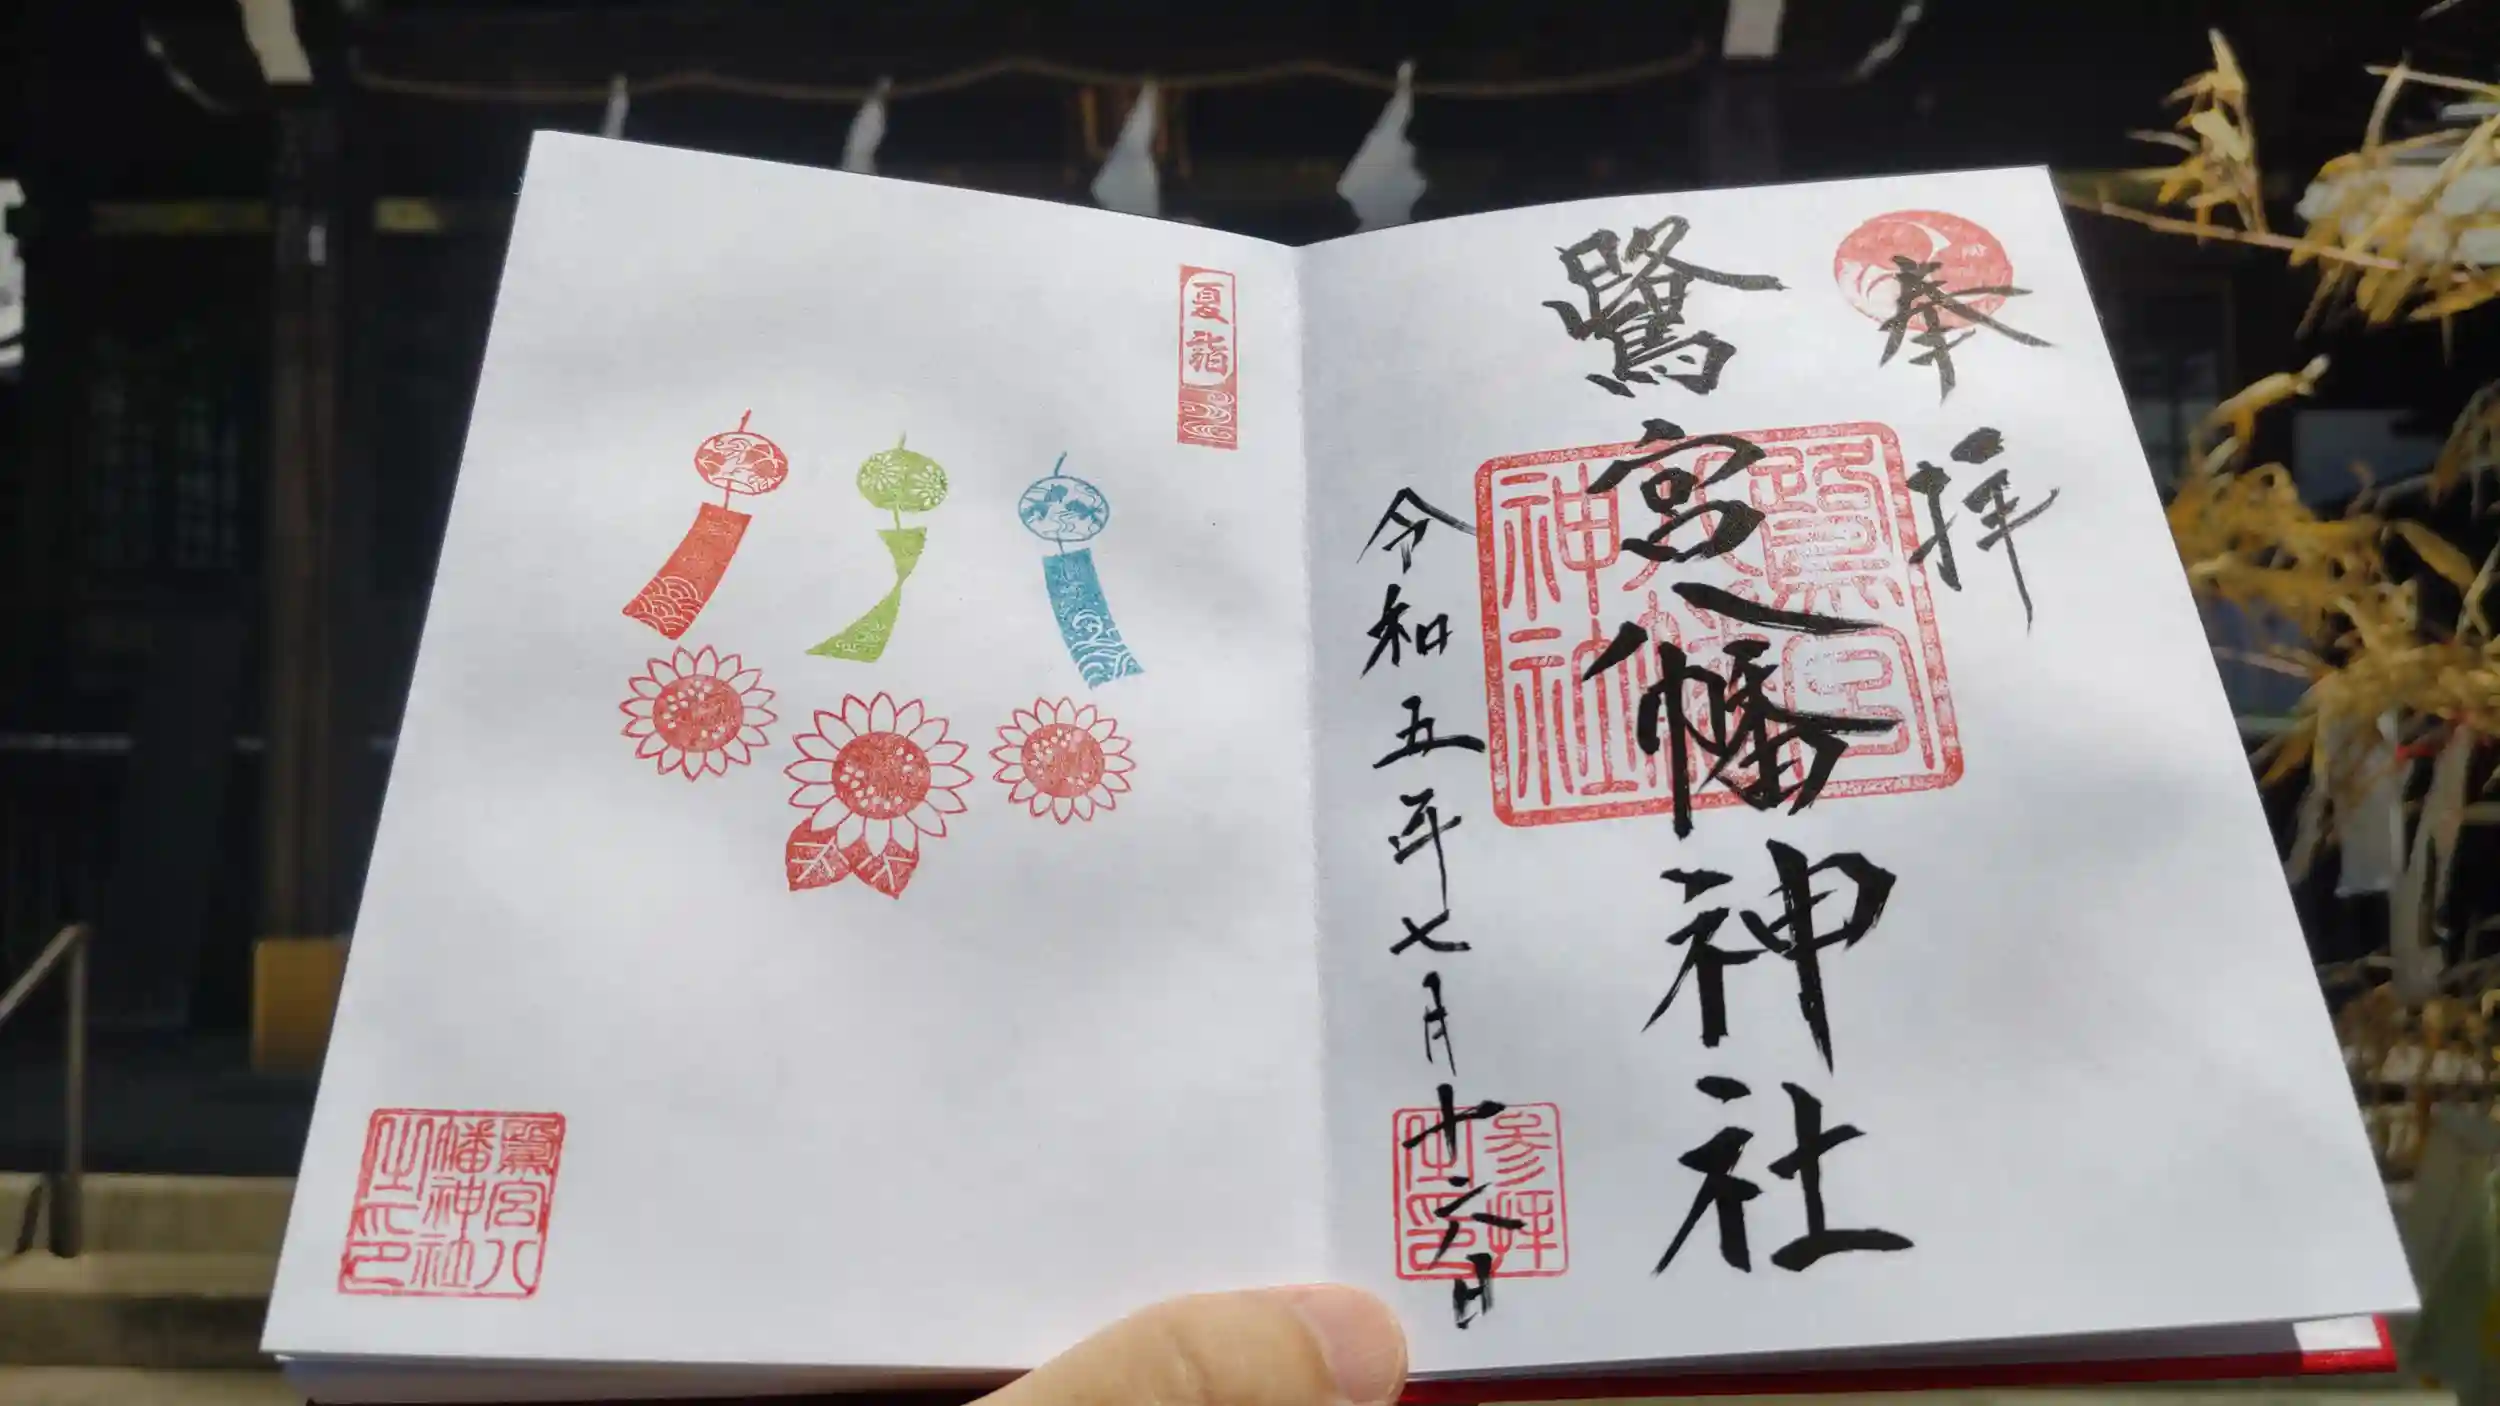 奉拝
鷺宮八幡神社
鷺宮八幡神社
令和五年七月十六日
参拝之印
夏詣
鷺宮八幡神社之印